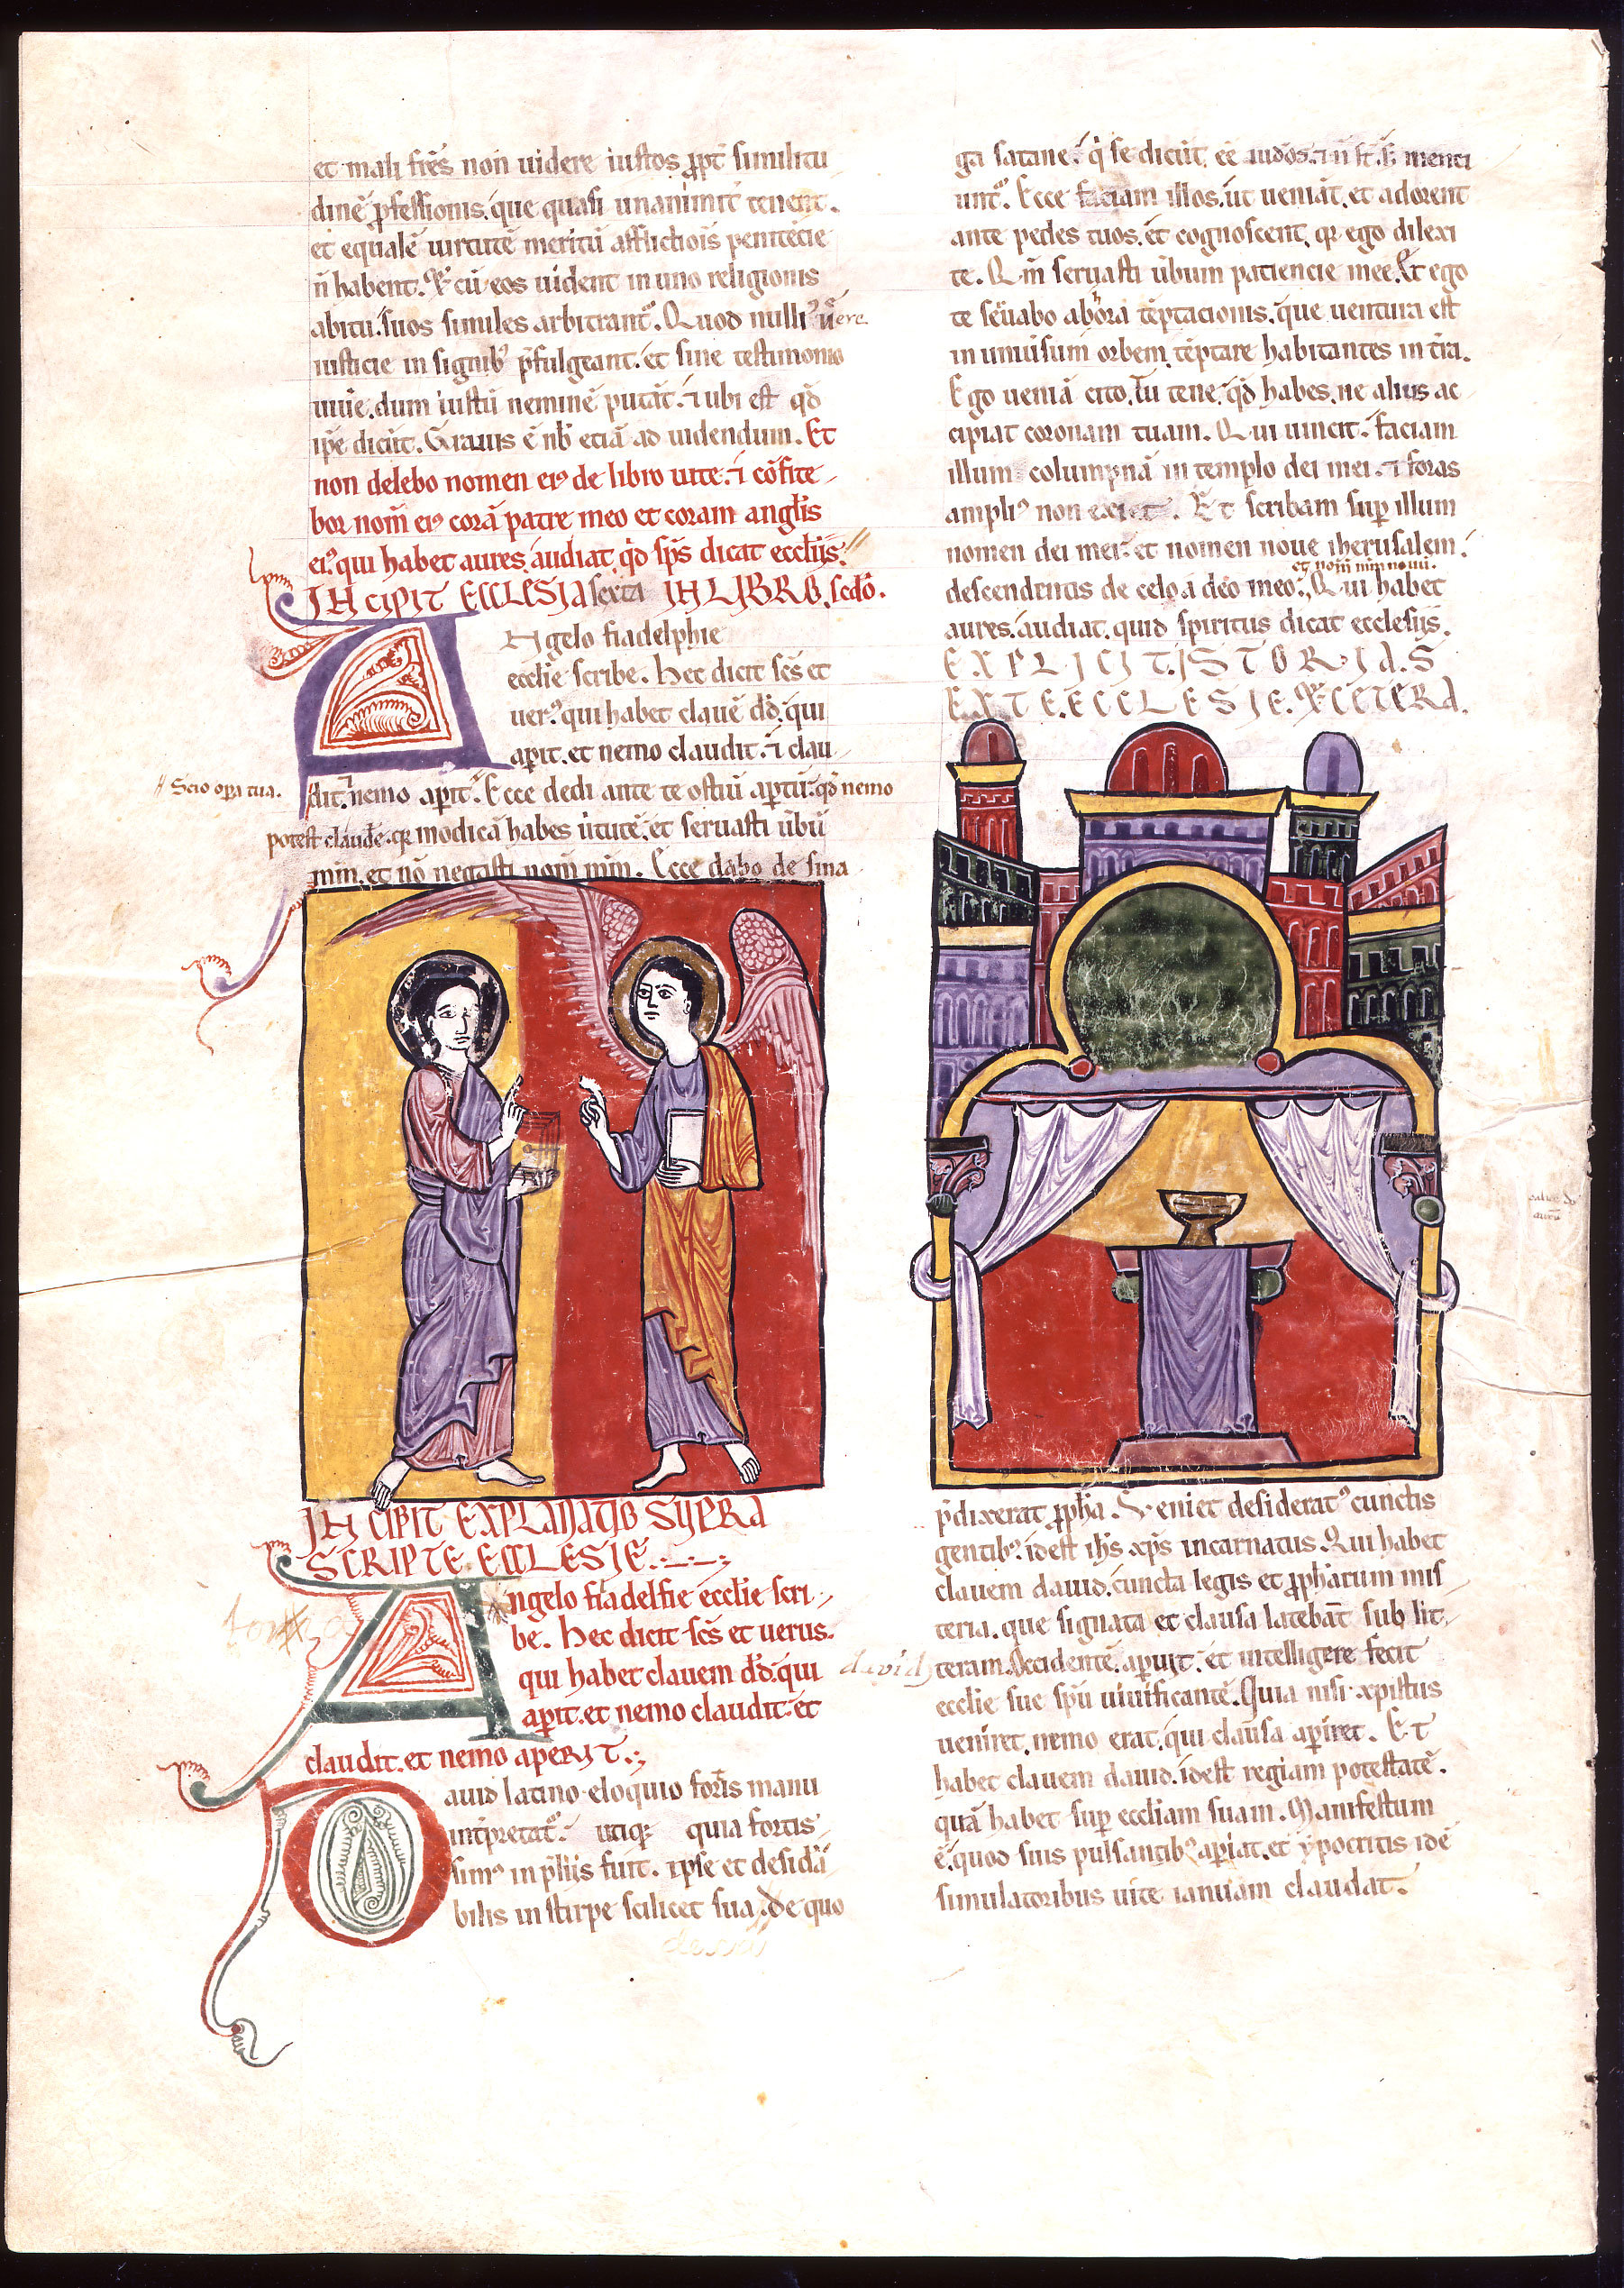 et mali fr̄es non uidere iustos ꝓpt̄ similitu
dinē ꝓfessionis. que quasi unanimit̄ tenent.
et equalē uirtutē meritū afflictiois̄ penitēcie
n̄ habent. Et cū eos uident in uno religionis
abitu. suos similes arbitrant᷑. Quod nulli᷒ uere
iusticie in signib᷒ p̄fulgeant. et sine testimonio
uiuūt. dum iustū neminē putāt. ⁊ ubi est qd̄
ip̄e dicūt. Grauis ē nb̄ etiā ad uidendum. Et
non delebo nomen ei᷒ de libro uite. ⁊ cōfite
bor nom̄ ei᷒ corā patre meo et coram angl̄is
ei᷒. qui habet aures. audiat. qd̄ sp̄s dicat eccl̄iis.
INCIPIT ECCLESIA sexta IN LIBRO. scdō.
Angelo fiadelphie
eccl̄ie scribe. Hec dicit sc̄s et
uer᷒. qui habet clauē dd̄. qui
aꝑit. et nemo claudit. ⁊ clau
// Scio oꝑa tua.
dit. ⁊ nemo aꝑit᷑. Ecce dedi ante te ostiū aꝑtū. qd̄ nemo
potest claudē. qr modicā habes uirtutē. et seruasti ūbū
mm̄. et nō negasti nom̄ mm̄. Ecce dabo de sina
INCIPIT EXPLANATIO SUPRA
SCRIPTE ECCLESIE
Angelo fiadelfie eccl̄ie scri
be. Hec dicit sc̄s et uerus.
qui habet clauem dd̄. qui
aꝑit. et nemo claudit. et
claudit. et nemo aperit.
Dauid latino eloquio fortis manu
int̄pretat᷑. utiq; quia fortis
sim᷒ in p̄liis fuit. ipse et desidā
bilis in stirpe scilicet sua. de quo
ga satane. qi se dicūt eē iudōs. ⁊ n̄ st̄. s; menti
unt᷑. Ecce faciam illos. ut ueniāt. et adorent
ante pedes tuos. et cognoscent. qr ego dilexi
te. Qm̄ seruasti ūbum paciencie mee. Et ego
te sēuabo ab hora tēptacionis. que uentura est
in uniūsum orbem. tēptare habitantes in t̄ra.
Ego ueniā cito. Tu tene. qd̄ habes. ne alius ac
cipiat coronam tuam. Qui uincit. faciam
illum columpnā in templo dei mei. ⁊ foras
ampli᷒ non exiet. Et scribam suꝑ illum
nomen dei mei. et nomen noue iherusalem.
et nom̄ mm̄ nouū.
descendentis de celo a deo meo. Qui habet
aures. audiat. quid spiritus dicat ecclesiis.
EXPLICIT. ISTORIA. S
EXTE. ECCLESIE. ET CETERA.
p̄dixerat ꝓpha. Veniet desiderat᷒ cunctis
gentib᷒. idest ih̄s xp̄s incarnatus. Qui habet
clauem dauid. cuncta legis et ꝓpharum mis
teria. que signata et clausa latebāt sub lit
david
teram. Occidentē. aꝑuit. et intelligere fecit
eccl̄ie sue sp̄u uiuificantē. Quia nisi xpistus
ueniret. nemo erat. qui clausa aꝑiret. Et
habet clauem dauid. idest regiam potestatē.
quā habet suꝑ eccl̄iam suam. Manifestum
ē. quod suis pulsantib᷒ aꝑiat. et ypocritis idē
simulatoribus uite ianuam claudat.